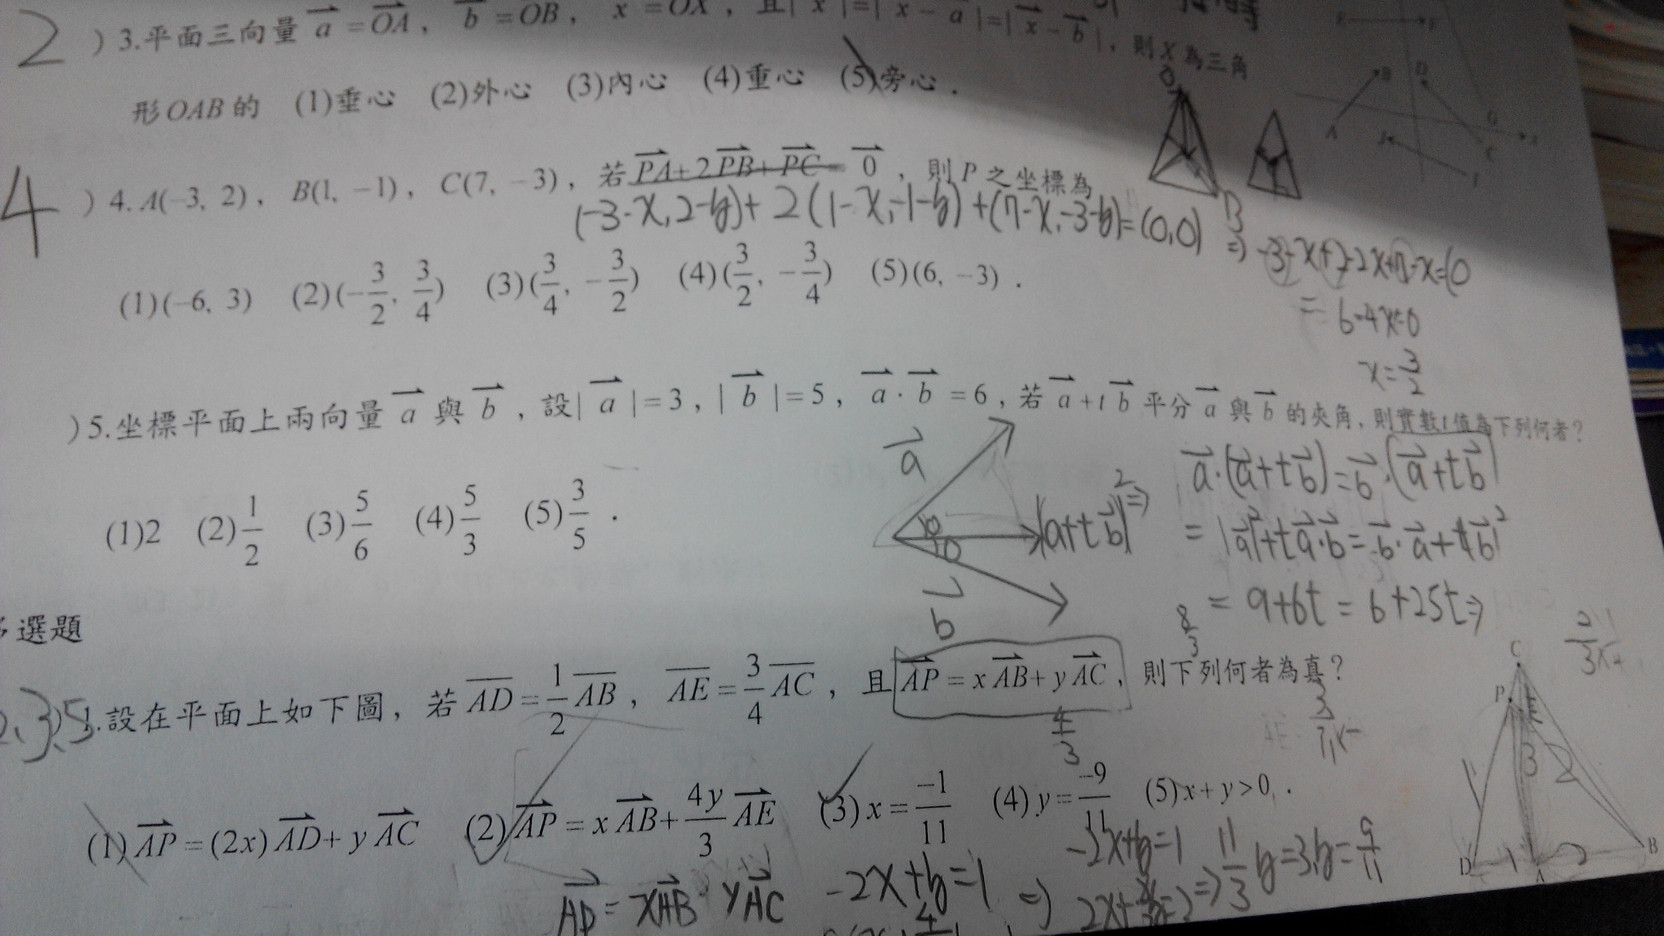 2 ) 3.平面三向量 a = OA , b = OB , x = OX , 且| x |=| x - a |=| x - b |, 則 X 為三角
形OAB的 (1)垂心 (2)外心 (3)內心 (4)重心 (5)旁心 .
O
B
4 ) 4. A(-3, 2) , B(1, -1) , C(7, -3) , 若 PA+2PB+PC = 0 , 則 P 之坐標為
(-3-x,2-y)+2(1-x,-1-y)+(7-x,-3-y)=(0,0) ⇒ -3-x+2-2x+7-x=0
= 6-4x=0
x=3/2
(1)(-6, 3) (2)(-3/2, 3/4) (3)(3/4, -3/2) (4)(3/2, -3/4) (5)(6, -3) .
)5.坐標平面上兩向量 a 與 b , 設| a |=3 , | b |=5 , a · b =6 , 若 a+t b 平分 a 與 b 的夾角, 則實數t值為下列何者?
(1)2 (2)1/2 (3)5/6 (4)5/3 (5)3/5 .
a
b
|a+tb|² ⇒
a·(a+tb)=b·(a+tb)
= |a|²+ta·b=b·a+t|b|²
= 9+6t = 6+25t ⇒
選題
8/3
2,3,5 1.設在平面上如下圖, 若 AD=1/2 AB , AE=3/4 AC , 且 AP = x AB+ y AC , 則下列何者為真?
4/3
C
P
E
1 3 2
D 1 A 2 B
(1) AP = (2x) AD+ y AC (2) AP = x AB+ 4y/3 AE (3) x = -1/11 (4) y = -9/11 (5) x + y > 0 .
AP = xAB yAC
-2x+y=1 ⇒
-2x+y=1
11/3 y=3,y=9/11